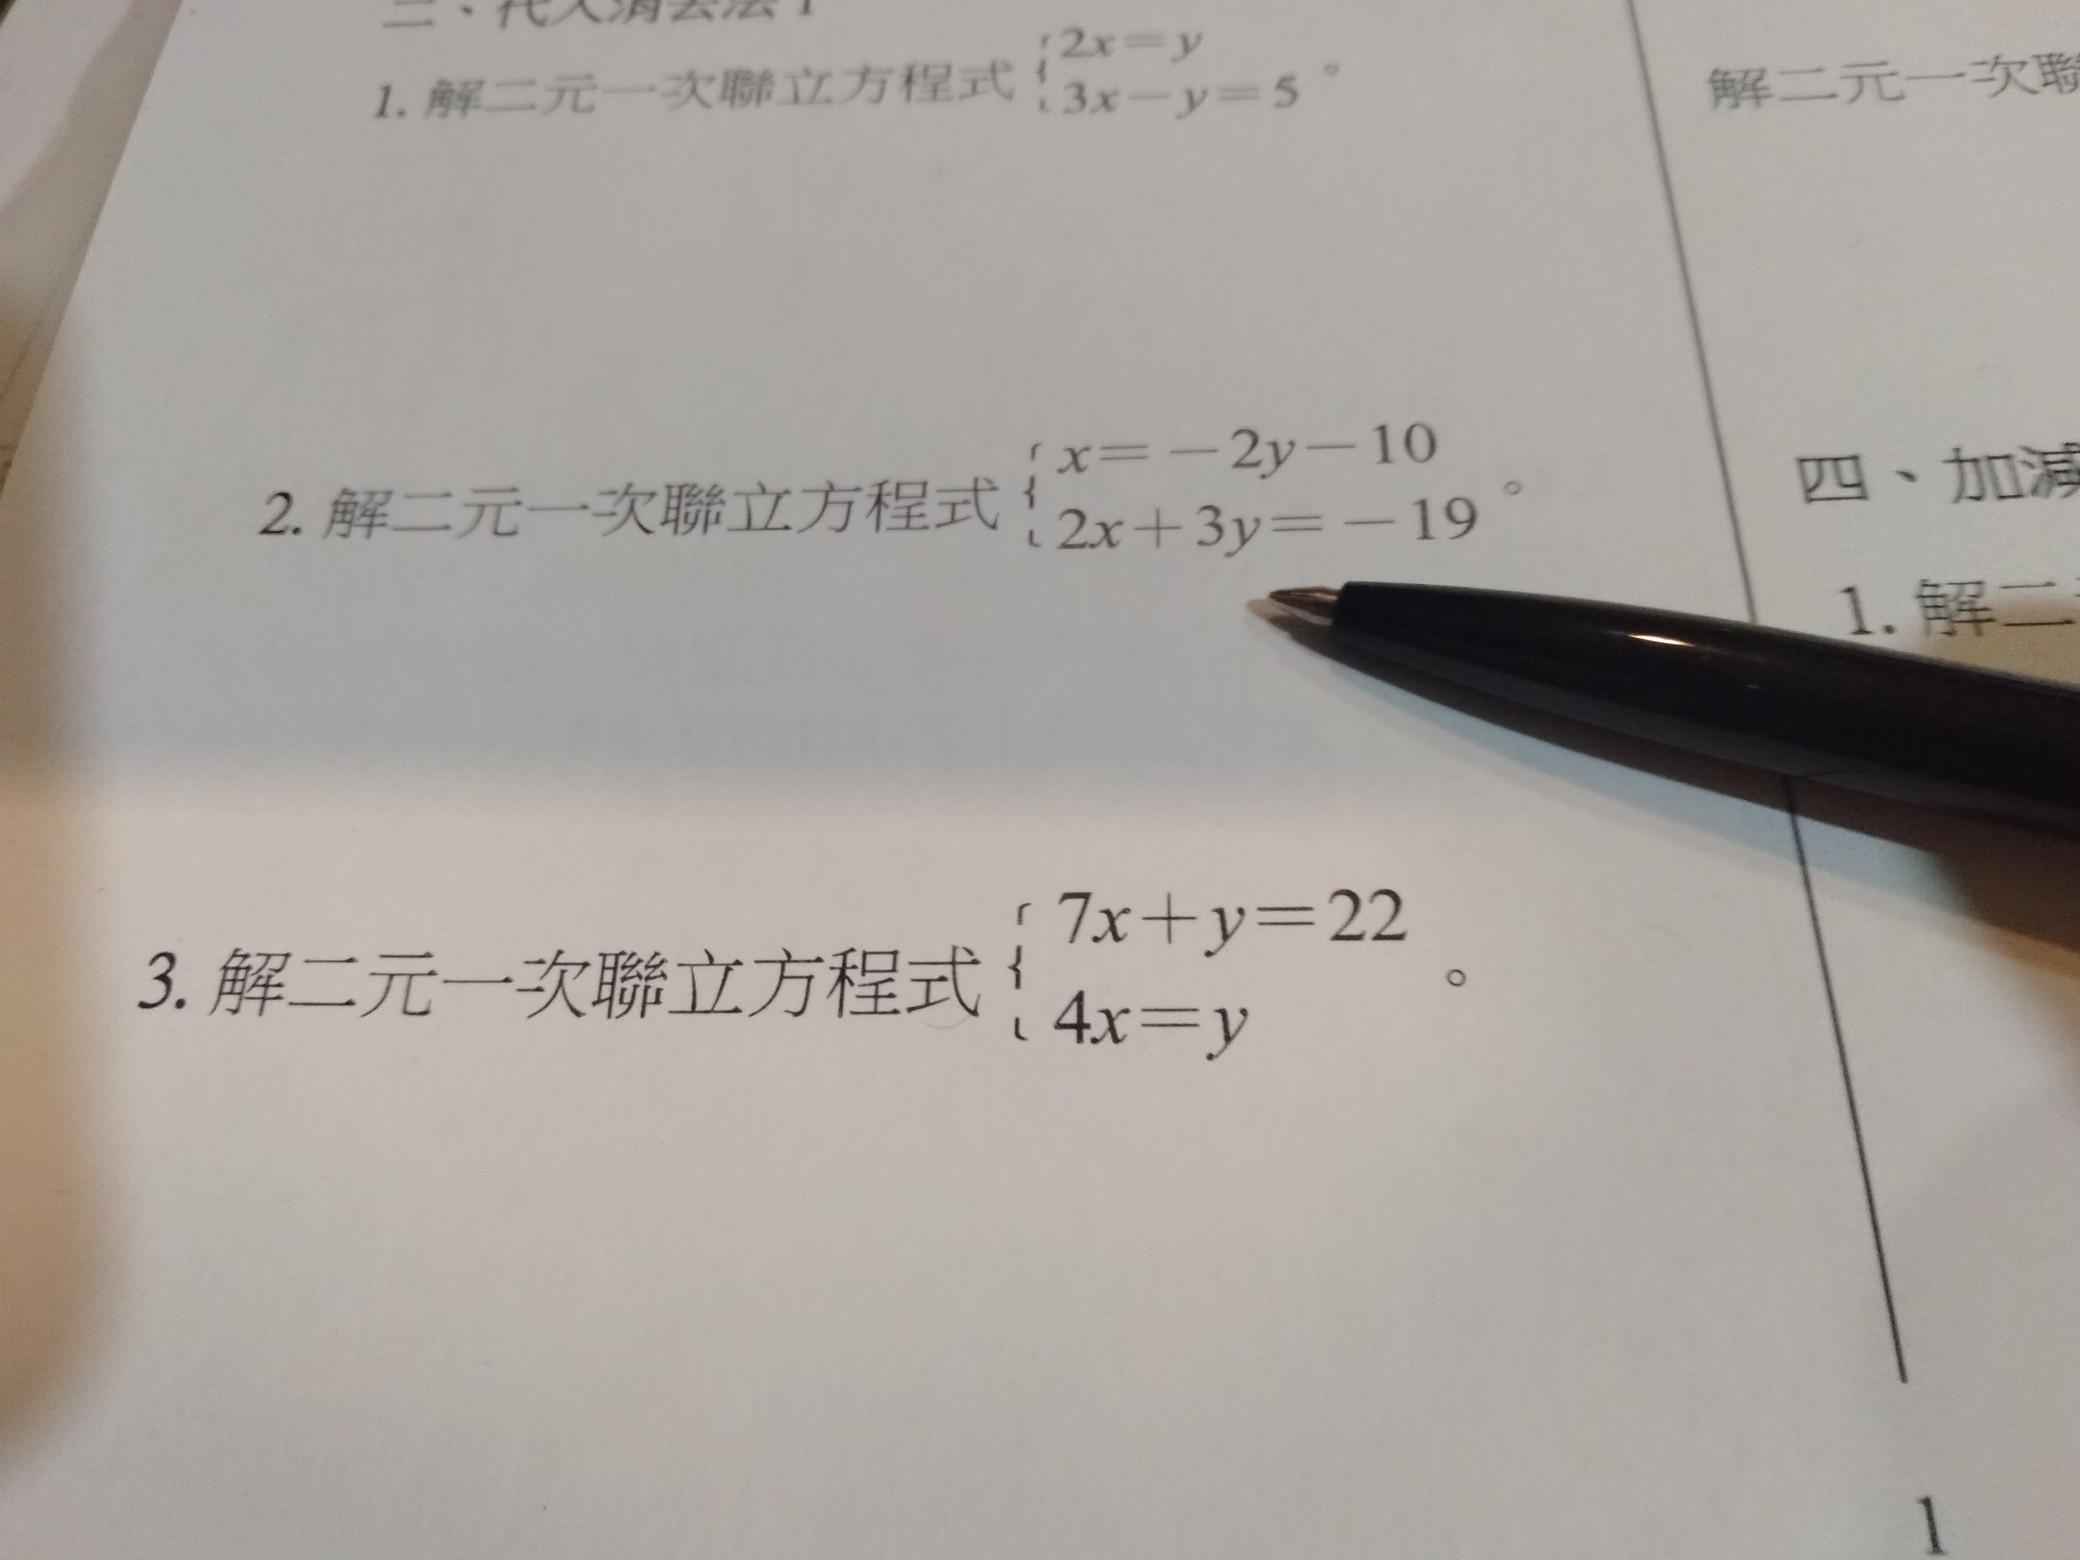 二、代入消去法 1
1. 解二元一次聯立方程式 { 2x=y
3x-y=5 。
2. 解二元一次聯立方程式 { x=-2y-10
2x+3y=-19 。
3. 解二元一次聯立方程式 { 7x+y=22
4x=y 。
解二元一次聯
四、加減
1. 解二
1